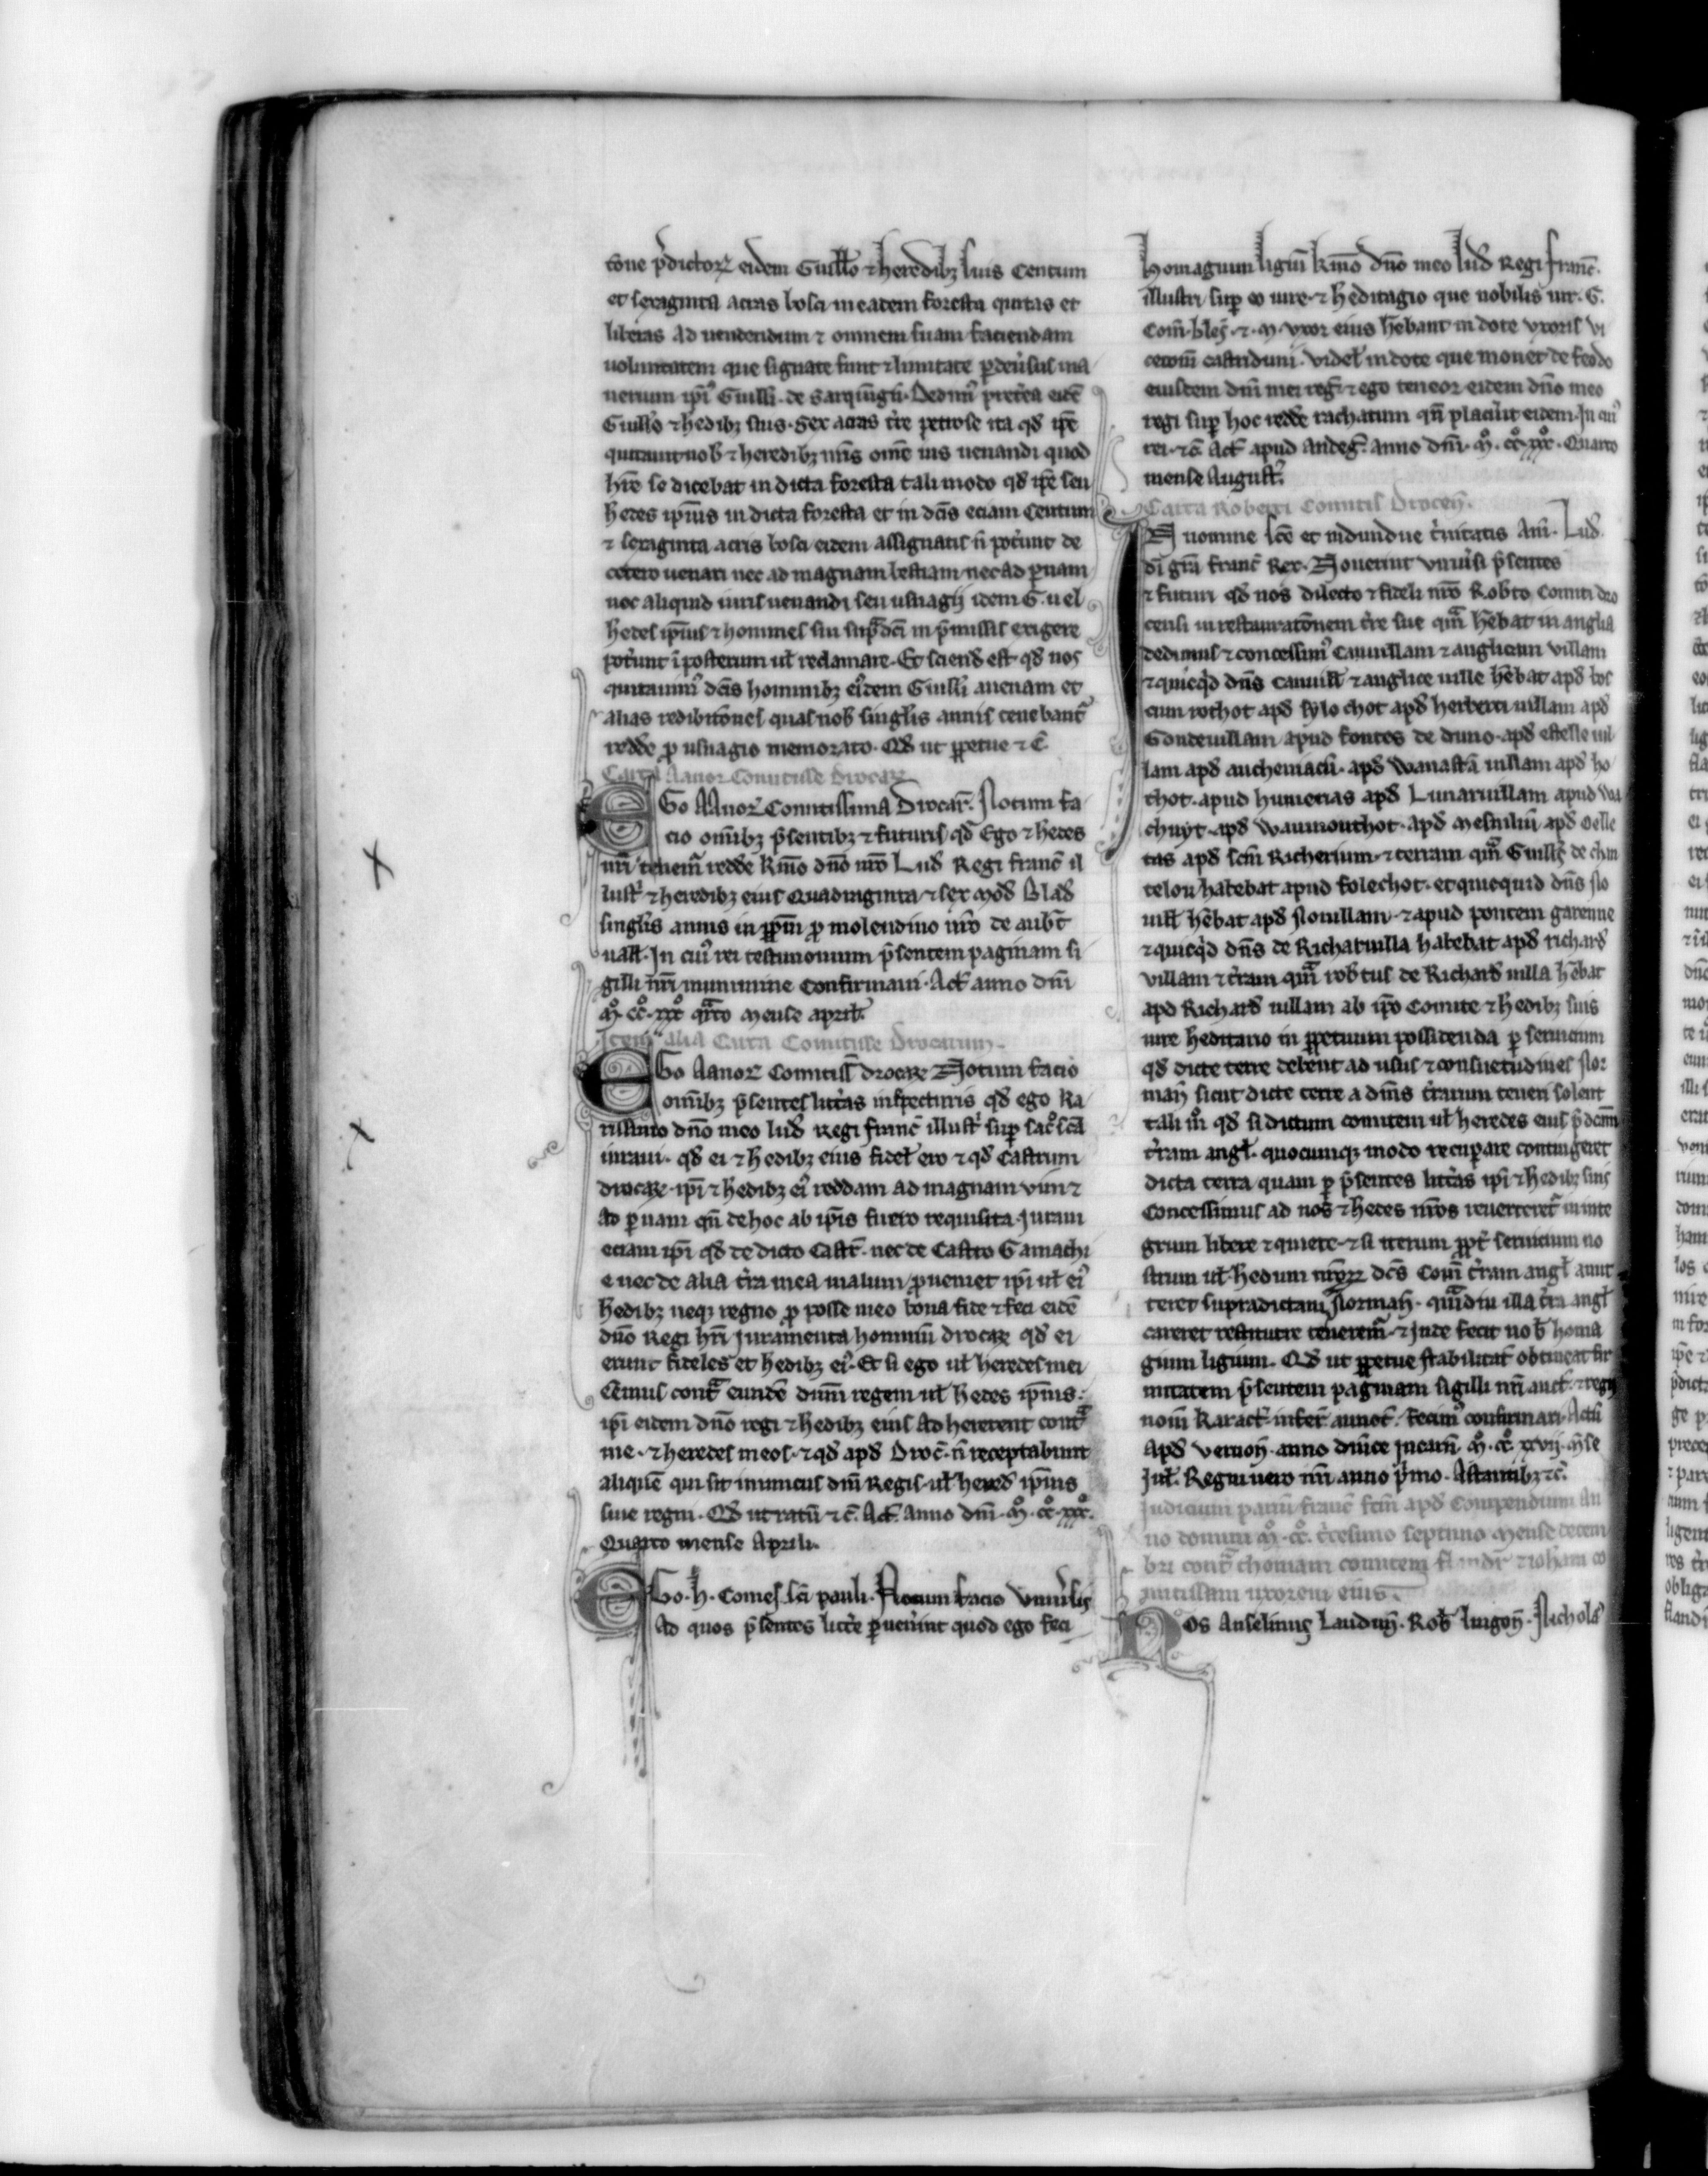 cōne p̄dictoꝝ eidem Guill̄o ⁊ heredibꝫ suis Centum
et sexaginta acras bosci in eadem foresta quitas et
liberas ad uendendum ⁊ omnem suam faciendam
uoluntatem que signate sunt ⁊ limitate ꝑ deuʼsus ma
nerium ip̄iꝰ Guill̄i. de Garquīgń. Dedimꝰ pretʼea eidē
Guill̄o ⁊ hedibꝫ suis. Sex acras tʼre petrose ita qd̄ ip̄e
quitauit nob̄ ⁊ heredibꝫ nr̄is om̄e ius uenandi quod
hr̄e se dicebat in dicta foresta tali modo qd̄ ip̄e seu
hedes ip̄ius in dicta foresta et in dc̄is eciam Centum
⁊ sexaginta acris bosci eidem assignatis n̄ potʼunt de
cetero uenari nec ad magnam bestiam nec ad ꝑuam
nec aliquid iuris uenandi seu usuagij idem G. uel
hedes ip̄ius ⁊ homines sui sup̄dc̄i in p̄missis exigere
potʼunt ī posterum ul̄ reclamare. Et sciend̄ est qd̄ nos
quitauimꝰ dc̄is hominibꝫ eiꝰdem Guill̄i auenam et
alias redibitiōnes quas nob̄ singl̄is annis tenebantʼ
redd̄e ꝓ usuagio memorato. Qd̄ ut ꝑpetue ⁊ c̄.
Carta Aanor Comitisse Drocaꝝ
Ego AAnor Comitissima Drocar̄. Notum fa
cio om̄ibꝫ p̄sentibꝫ ⁊ futuris qd̄ Ego ⁊ hedes
mi/ tenemʼ redd̄e K̄mo dn̄o nr̄o Lud̄ Regi franc̄ il
lustʼ ⁊ heredibꝫ eius Quadraginta ⁊ sex mod̄ Blad̄
singl̄is annis in ꝑpm̄ ꝓ molendino nr̄o de aub̄t
uall̄. In cuiꝰ rei testimonium p̄sentem paginam si
gilli mi munimine Confirmaui. Act̄ anno dn̄i
m̊. cc̊. xxx̊ qr̄to mense april̄.
Item alia Carta Comitisse Drocarum.
Ego Aanor Comitiss̄ drocaꝝ Notum facio
om̄ibꝫ p̄sentes litʼas inspecturis qd̄ ego Ka
rissimo dn̄o meo lud̄ regi franc̄ illustʼ suꝑ sac̊sc̄a
iuraui. qd̄ ei ⁊ hedibꝫ eius fidel̄ ero ⁊ qd̄ Castrum
drocaꝝ. ip̄i ⁊ hedibꝫ eiꝰ reddam ad magnam vim ⁊
ad ꝑuam qn̄ de hoc ab ip̄is fuero requisita. Juraui
eciam ip̄i qd̄ de dicto Castr̄. nec de Castro Gamachi
e nec de alia tʼra mea malum ꝓueniet ip̄i ul̄ eiꝰ
hedibꝫ neqꝫ regno ꝓ posse meo bona fide ⁊ feci eidē
dn̄o Regi hr̄i Juramenta hominū drocaꝝ qd̄ ei
erunt fideles et hedibꝫ eiꝰ. Et si ego ul̄ heredes mei
Eimus contᵃ eundē dn̄m regem ul̄ hedes ip̄ius.
ip̄i eidem dn̄o regi ⁊ hedibꝫ eius Ad hererent contᵃ
me. ⁊ heredes meos. ⁊ qd̄ apd̄ Droc̄. n̄ receptabunt
aliquē qui sit inimicus dn̄i Regis. ul̄ hered̄ ip̄ius
siue regni. Qd̄ ut ratū ⁊ c̄. Act̄. Anno dn̄i. m̊. cc̊. xxx̊.
Quarto mense Aprili.
Ego. h. Comes sc̄i pauli. Notum facio vniuʼsis
Ad quos p̄sentes littʼe ꝑuenʼint quod ego feci
homagium ligiū k̄mo dn̄o meo lud̄ Regi franc̄.
illustri suꝑ eo iure. ⁊ heditagio que nobilis uir. G.
Com̄. bles̄. ⁊. m̄. vxor eius hēbant in dote vxoris vi
cecom̄ castriduni. videl̄ in dote que mouet de feodo
eiusdem dn̄i mei reḡ. ⁊ ego teneor eidem dn̄o meo
regi suꝑ hoc redd̄e rachatum qn̄ placuʼit eidem. In cuiꝰ
rei. ⁊ c̄. Act̄ apud andeḡ. anno dn̄i. m̊. cc̊. xxx̊. Quarto
mense August̄.
Carta Roberti Comitis Drocen̄.
IN nomine sc̄e et indiuidue tʼnitatis Am̄. Lud̄.
dī grā franc̄ Rex. Nouerint vniuʼsi p̄sentes
⁊ futuri qd̄ nos dilecto ⁊ fideli nr̄o Rob̄to Comiti dro
censi in restauratōnem tʼre sue qm̄ hēbat in anglia
dedimus ⁊ concessimꝰ Cauuillam ⁊ anglicam villam
⁊ quicq̄d dn̄s cauuill̄ ⁊ anglice uille hēbat apd̄ bos
cum rochot apd̄ sylo chot apd̄ herberti uillam apd̄
Gondeuillam apud fontes de duno. apd̄ estelle uil
lam apd̄ auchemacū. apd̄ Wanastā uillam apd̄ ho
thot. apud humerias apd̄ Lunaruillam apud wa
chuyt. apd̄ wauinouthot. apd̄ mesnilū apd̄ oelle
tas apd̄ sc̄m Richerium. ⁊ terram qm̄ Guill̄s de chan
telou/ habebat apud folechot. et quicquid dn̄s flo
uill̄ hēbat apd̄ flouillam. ⁊ apud pontem garenne
⁊ quicq̄d dn̄s de Richaruilla habebat apd̄ richard̄
villam ⁊ tʼram qm̄ rob̄tus de Richard̄ uilla hēbat
apd Richard̄ uillam ab ip̄o Comite ⁊ hedibꝫ suis
iure heditario in ꝑpetuum possidenda ꝑ seruicium
qd̄ dicte terre debent ad usus ⁊ consuetudines Nor
man̄ sicut dicte terre a dn̄is tʼrarum teneri solent
tali m̊ qd̄ si dictum comitem ul̄ heredes eius p̄dcam̄
tʼram angl̄. quocumqꝫ modo recuꝑare contingeret
dicta terra/ quam ꝑ p̄sentes littʼas ip̄i ⁊ hedibꝫ suis
Concessimus ad nos ⁊ hedes nr̄os reuerteretʼ in inte
grum libere ⁊ quiete. ⁊ si iterum ꝓpt̄ seruicium no
strum ul̄ hedum nr̄oꝝ dc̄s Com̄ tʼram angl̄ amit
teret supradictam Norman̄. quādiu illa tʼra angl̄
careret restituere teneremʼ. ⁊ Inde fecit nob̄ homa
gium ligium. Qd̄ ut ꝑpetue stabilitat̄ obtineat fir
mitatem p̄sentem paginam sigilli mi auct̄. ⁊ regij
noīs Karact̄. inferʼ annot̄. fecimꝰ confirmari. Actū
Apd̄ vernon̄. anno dn̄ice Incarn̄. m̊. cc̊. xxvij. m̄se
Jul̄. Regni uero mi anno p̄mo. Astantibꝫ ⁊c̄.
Judicium pariū franc̄ fcm̄ apd̄ Compendium An
no domini m̊. cc̊. tʼcesimo septimo mense decem
bri contᵃ thomam comitem flandr̄ ⁊ ioh̄am co
mitissam uxorem eius.
Nos Anselmus Laudun̄. Rob̄ lingon̄. Nicholaꝰ